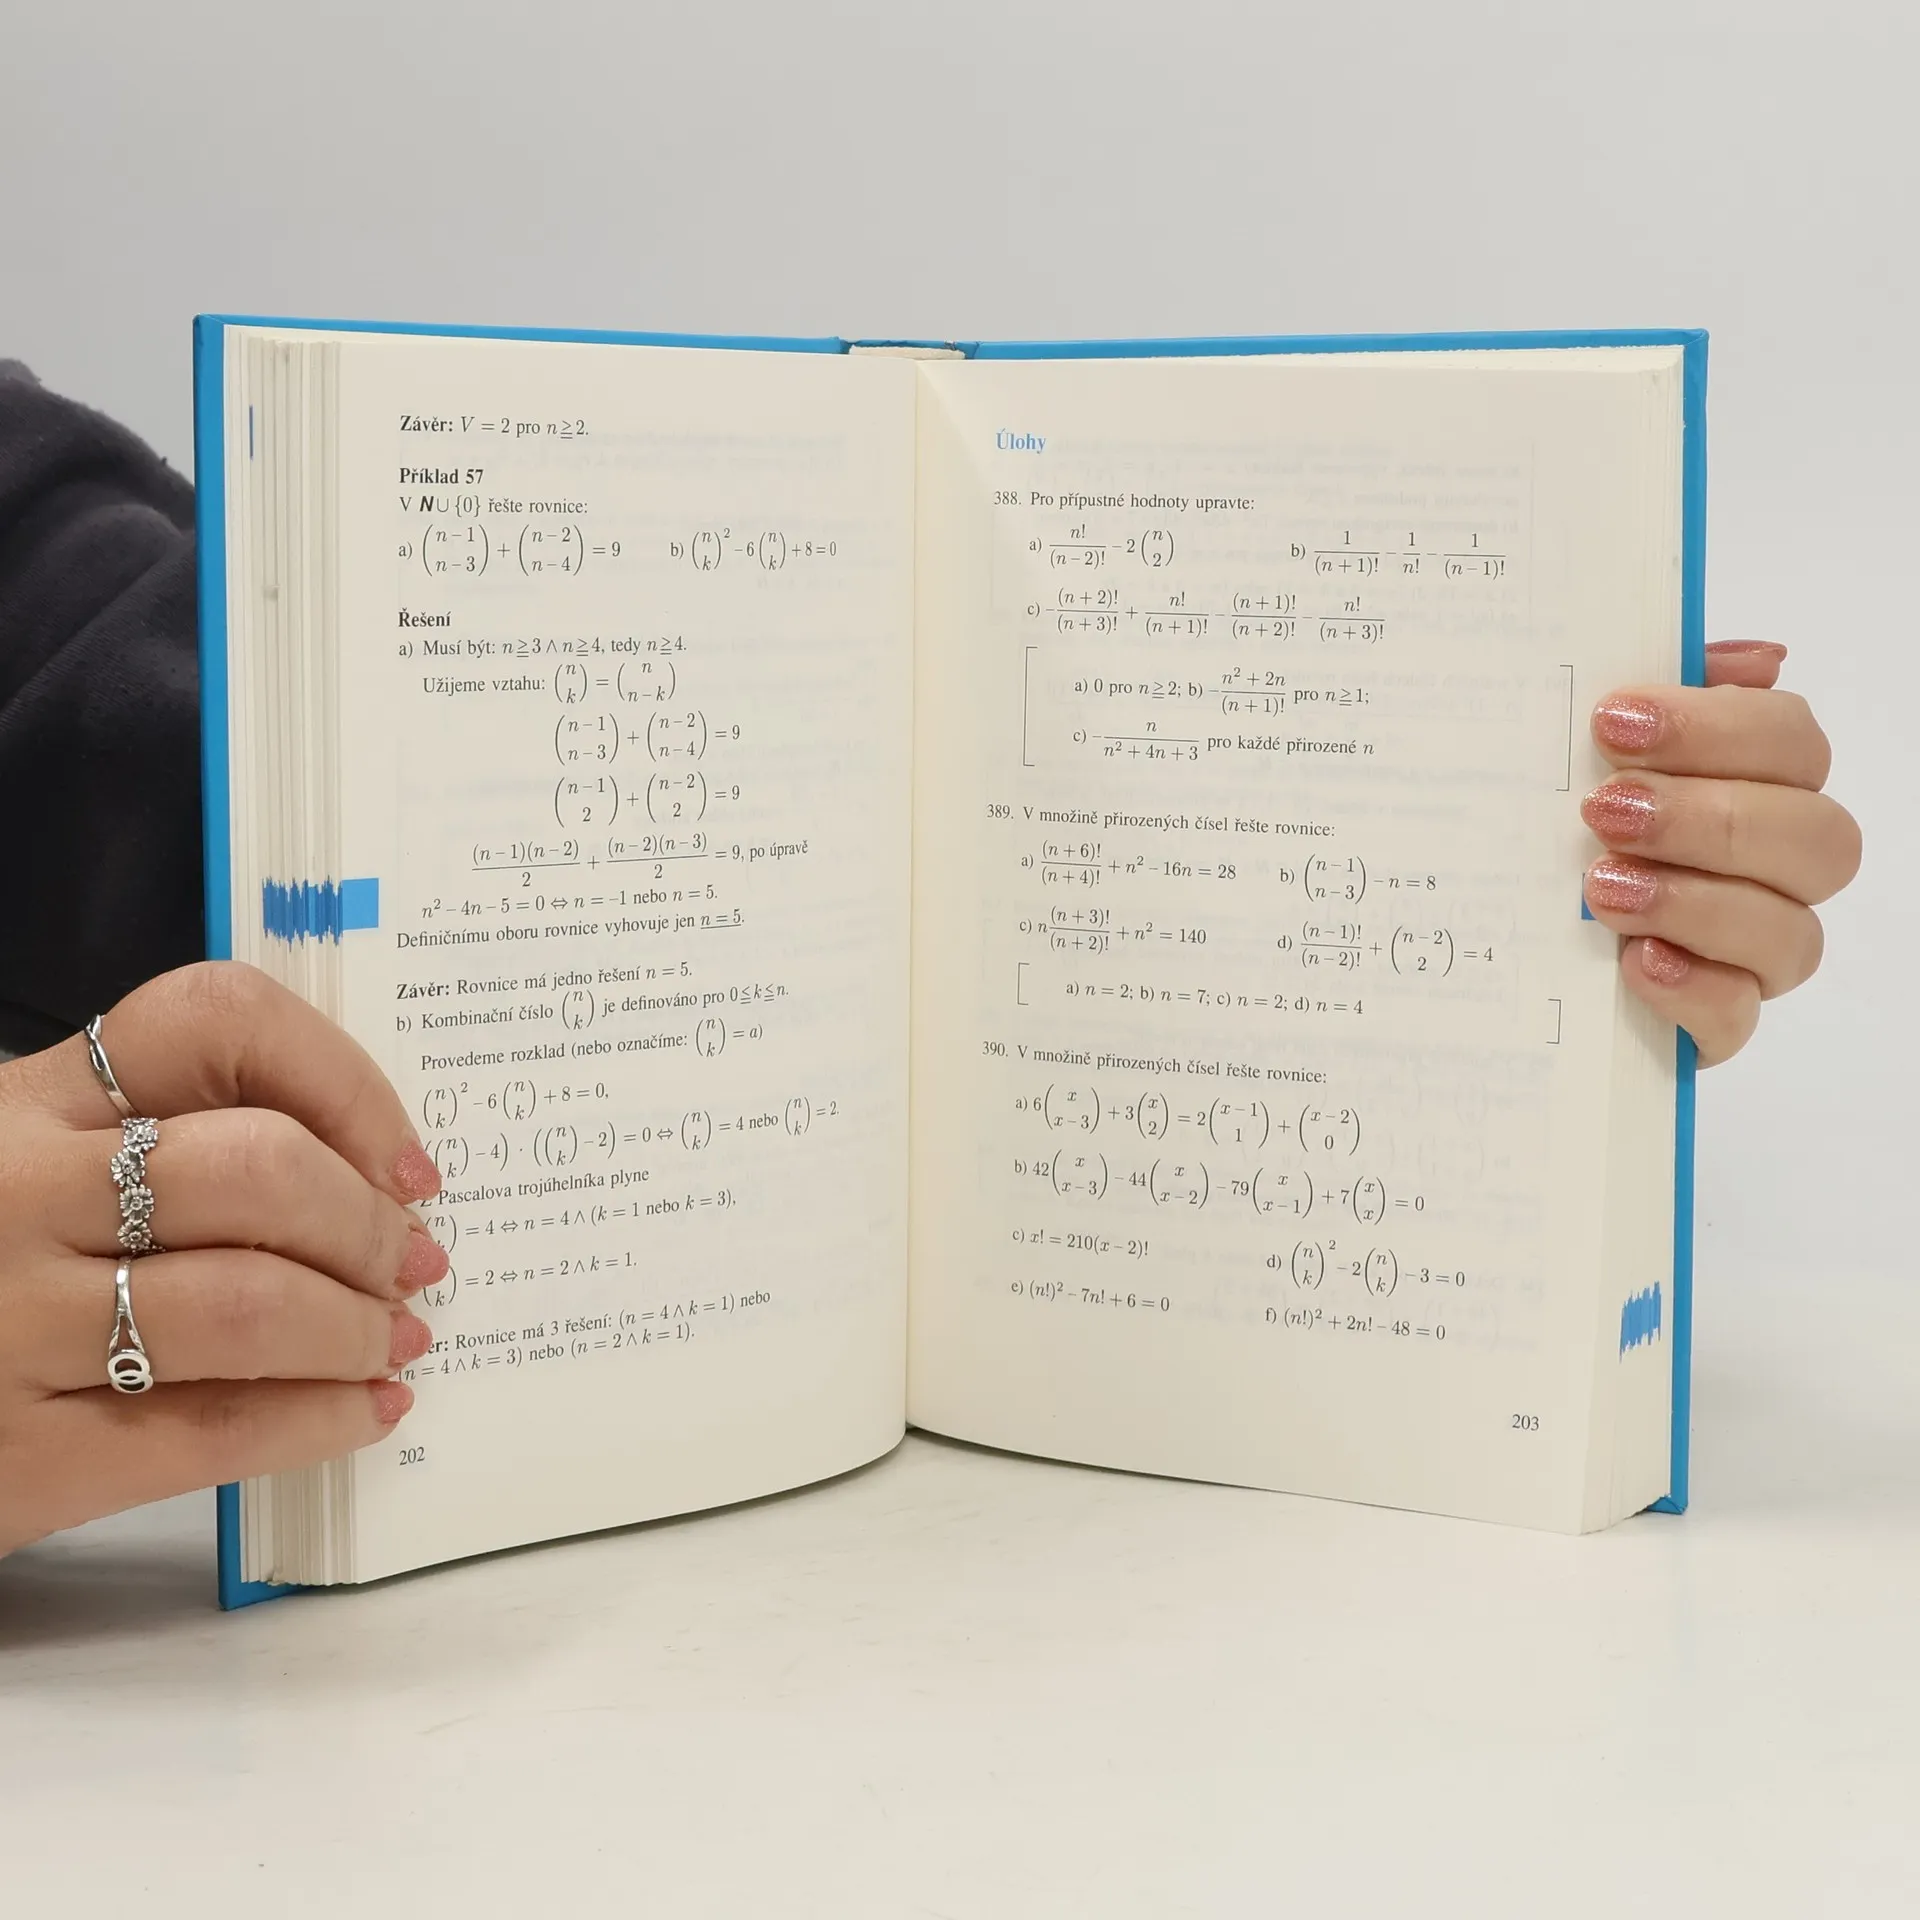 Závěr: V = 2 pro n ≧ 2.
Příklad 57
V N ∪ {0} řešte rovnice:
a) (n−1 / n−3) + (n−2 / n−4) = 9 b) (n / k)² − 6 (n / k) + 8 = 0
Řešení
a) Musí být: n ≧ 3 ∧ n ≧ 4, tedy n ≧ 4.
Užijeme vztahu: (n / k) = (n / n−k)
(n−1 / n−3) + (n−2 / n−4) = 9
(n−1 / 2) + (n−2 / 2) = 9
(n−1)(n−2)/2 + (n−2)(n−3)/2 = 9, po úpravě
n² − 4n − 5 = 0 ⇔ n = −1 nebo n = 5.
Definičnímu oboru rovnice vyhovuje jen n = 5.
Závěr: Rovnice má jedno řešení n = 5.
b) Kombinační číslo (n / k) je definováno pro 0 ≦ k ≦ n.
Provedeme rozklad (nebo označíme: (n / k) = a)
(n / k)² − 6 (n / k) + 8 = 0,
((n / k) − 4) · ((n / k) − 2) = 0 ⇔ (n / k) = 4 nebo (n / k) = 2.
Z Pascalova trojúhelníka plyne
(n = 4 ⇔ n = 4 ∧ (k = 1 nebo k = 3),
k) = 2 ⇔ n = 2 ∧ k = 1.
er: Rovnice má 3 řešení: (n = 4 ∧ k = 1) nebo
(n = 4 ∧ k = 3) nebo (n = 2 ∧ k = 1).
202
Úlohy
388. Pro přípustné hodnoty upravte:
a) n!/(n−2)! − 2 (n / 2) b) 1/(n+1)! − 1/n! − 1/(n−1)!
c) −(n+2)!/(n+3)! + n!/(n+1)! − (n+1)!/(n+2)! − n!/(n+3)!
[a) 0 pro n ≧ 2; b) −(n² + 2n)/(n+1)! pro n ≧ 1;
c) −n/(n² + 4n + 3) pro každé přirozené n]
389. V množině přirozených čísel řešte rovnice:
a) (n+6)!/(n+4)! + n² − 16n = 28 b) (n−1 / n−3) − n = 8
c) n (n+3)!/(n+2)! + n² = 140 d) (n−1)!/(n−2)! + (n−2 / 2) = 4
[a) n = 2; b) n = 7; c) n = 2; d) n = 4]
390. V množině přirozených čísel řešte rovnice:
a) 6 (x / x−3) + 3 (x / 2) = 2 (x−1 / 1) + (x−2 / 0)
b) 42 (x / x−3) − 44 (x / x−2) − 79 (x / x−1) + 7 (x / x) = 0
c) x! = 210(x − 2)! d) (n / k)² − 2 (n / k) − 3 = 0
e) (n!)² − 7n! + 6 = 0 f) (n!)² + 2n! − 48 = 0
203